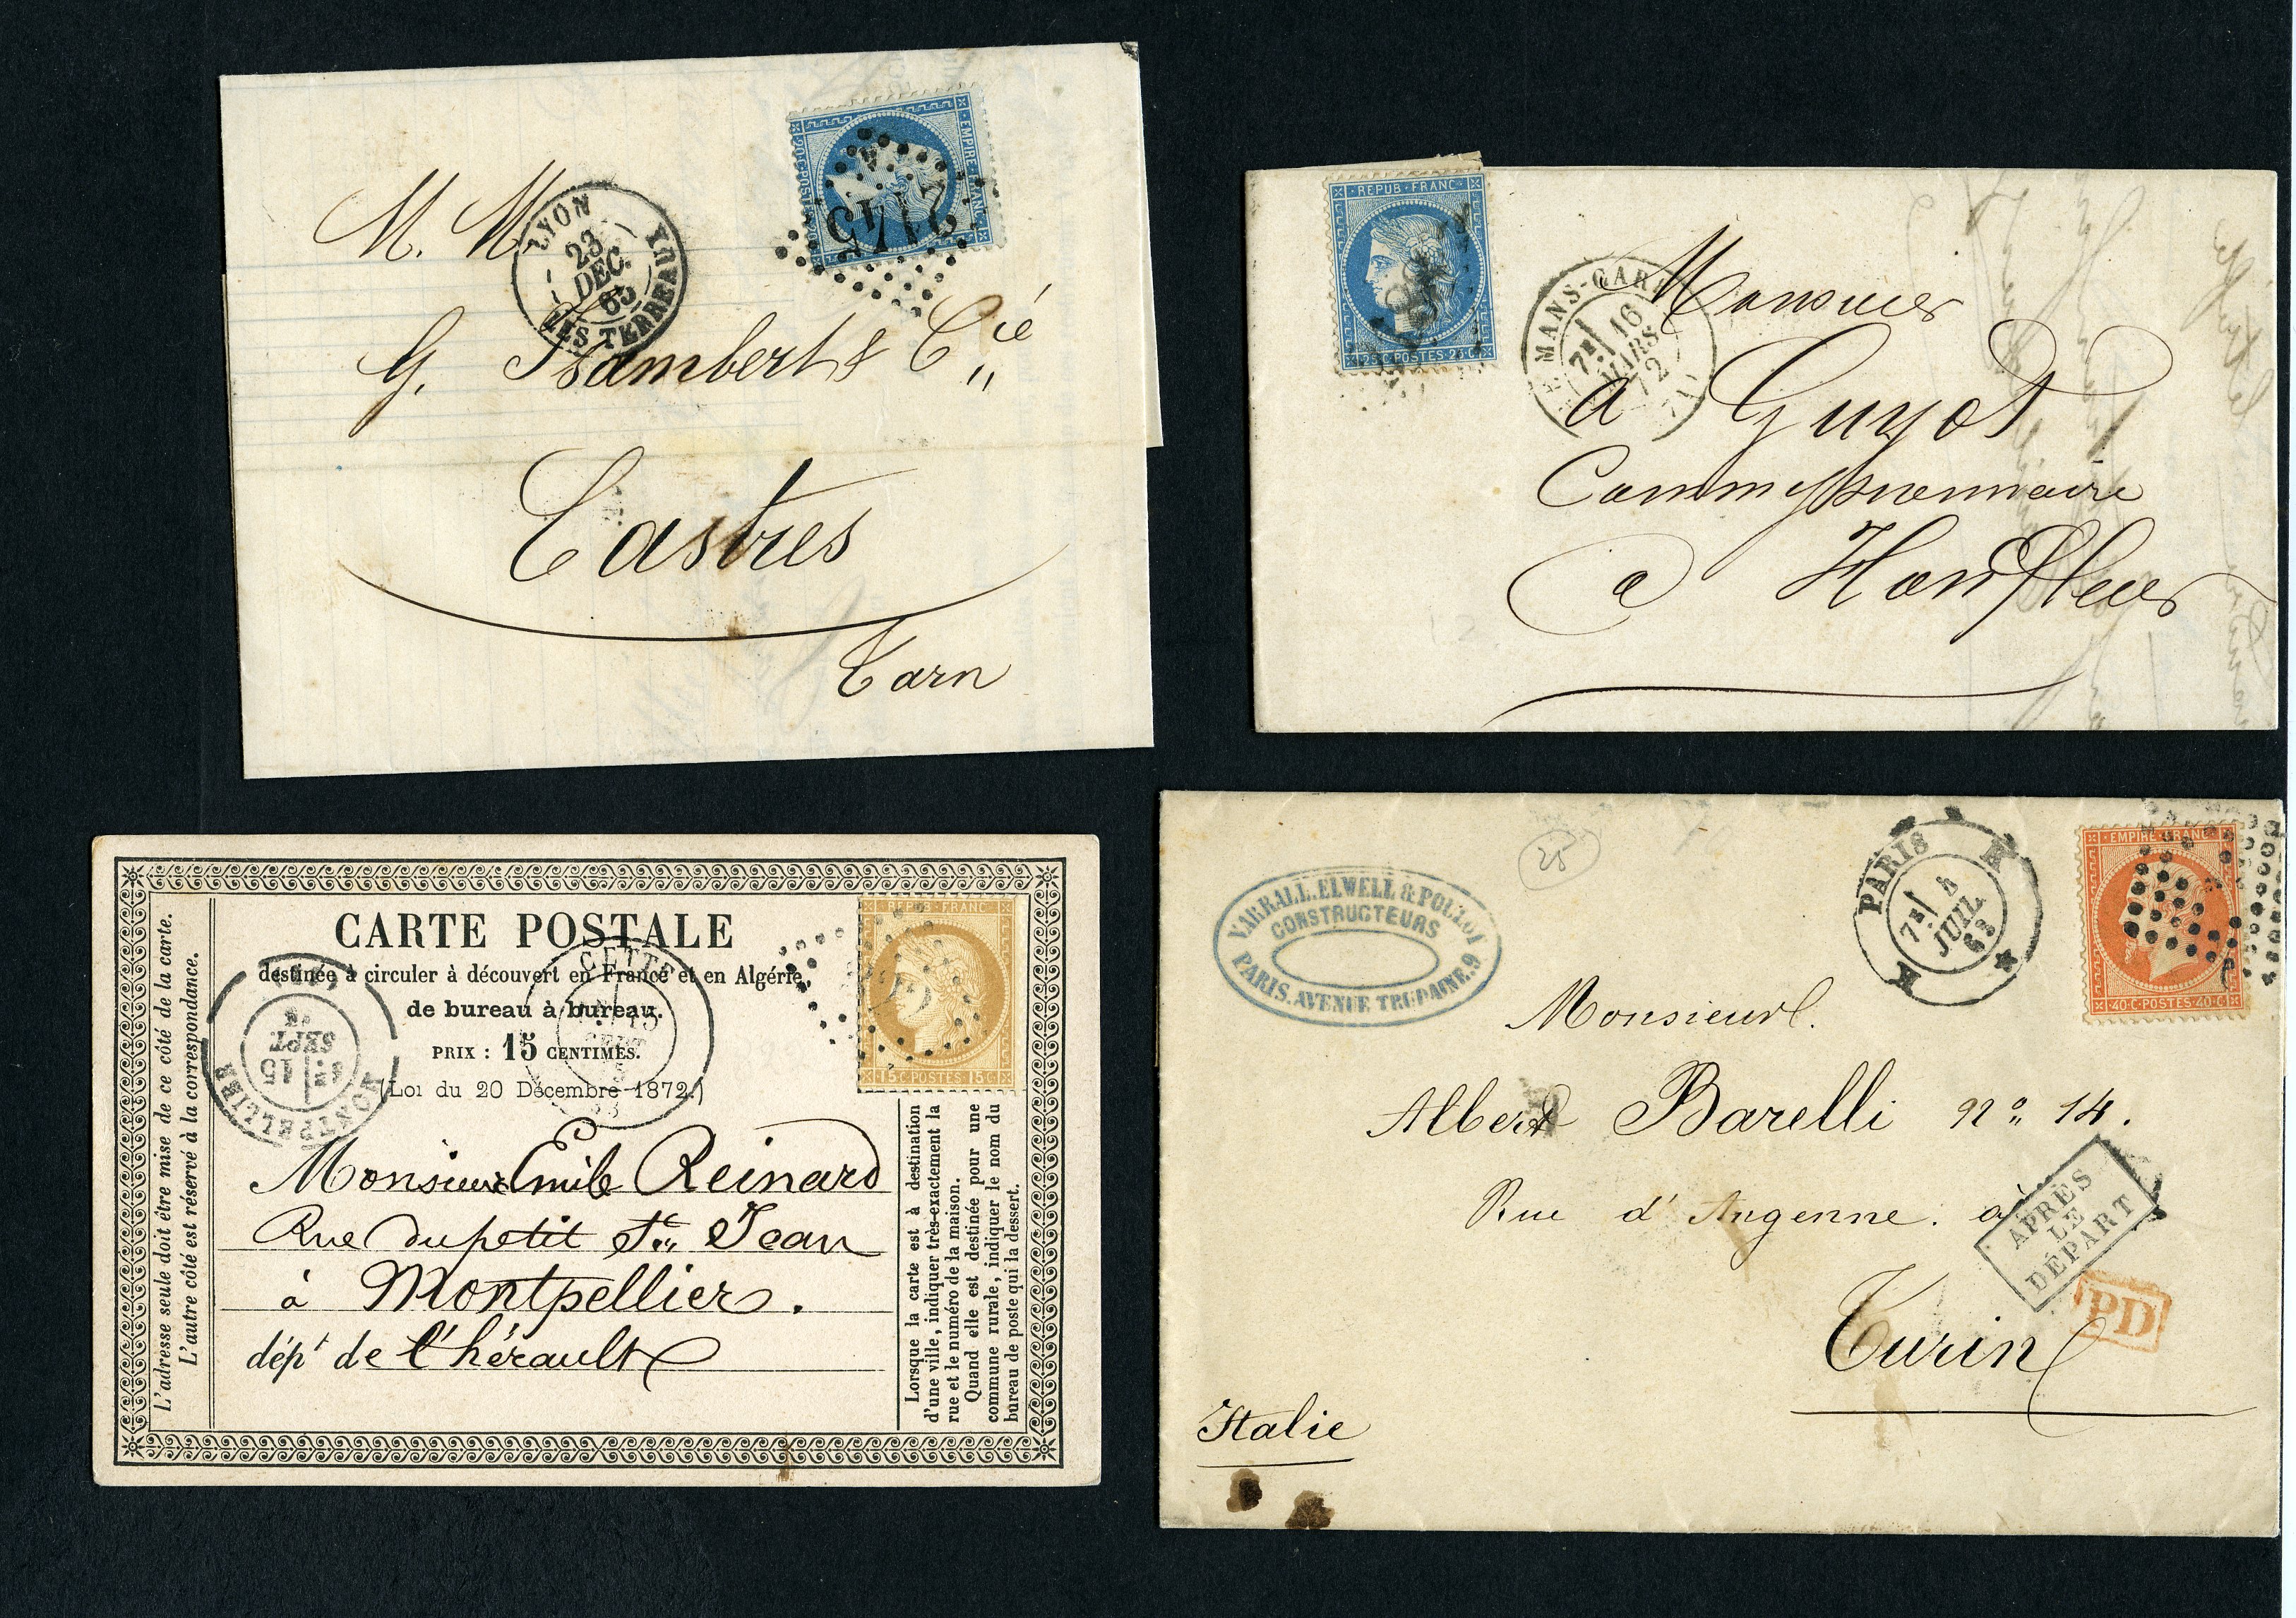 EMPIRE FRANC
20 C POSTES 20 C
2145
LYON
23
DEC.
65
LES TERREAUX
M. M
G. Isambert & Cie
Castres
Tarn
REPUB FRANC
25 C POSTES 25 C
MANS-GARE
7E
16
MARS
72
Monsieur
a Guyot
Commissionnaire
a Honfleur
CARTE POSTALE
destinée à circuler à découvert en France et en Algérie,
de bureau à bureau.
PRIX : 15 CENTIMES.
(Loi du 20 Décembre 1872.)
REPUB FRANC
15 C POSTES 15 C
CETTE
15
SEPT
MONTPELLIER
15
SEPT
L'adresse seule doit être mise de ce côté de la carte.
L'autre côté est réservé à la correspondance.
Monsieur Emile Reinard
Rue du petit St. Jean
à Montpellier.
dépt de l'hérault
Lorsque la carte est à destination
d'une ville, indiquer très-exactement la
rue et le numéro de la maison.
Quand elle est destinée pour une
commune rurale, indiquer le nom du
bureau de poste qui la dessert.
VARRALL. ELWELL & POULOT
CONSTRUCTEURS
PARIS. AVENUE TRUDAINE. 9
25
PARIS
7E
4
JUIL
63
EMPIRE FRANC
40 C POSTES 40 C
Monsieur
Albert Barelli No 14.
Rue d'Angenne. à
APRÈS
LE
DÉPART
PD
Turin
Italie